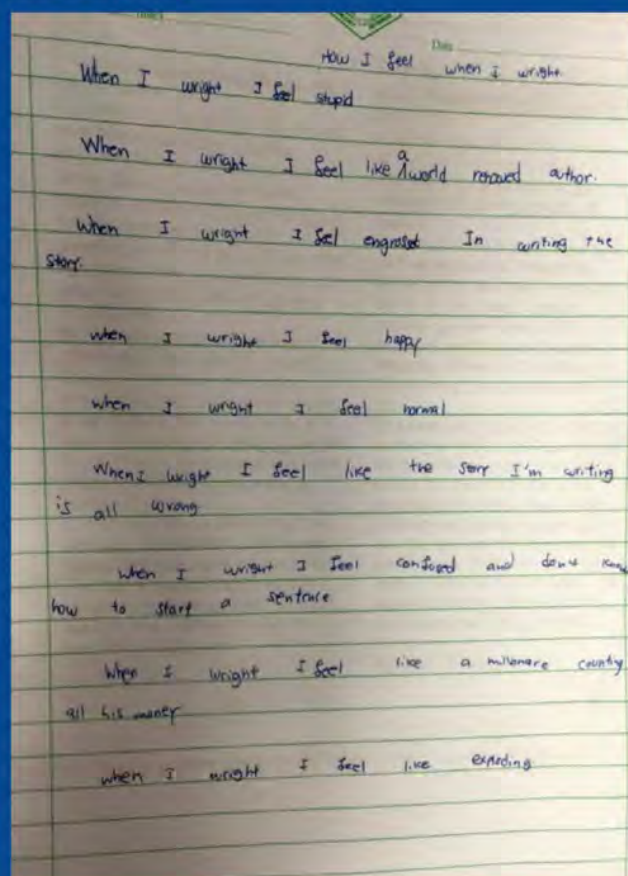 Date
How I feel when I wright
When I wright I feel stupid
When I wright I feel like a world renowed author.
When I wright I feel engrossed In writing the
story.
when I wright I feel happy
when I wright I feel normal
When I wright I feel like the story I'm writing
is all wrong
when I wright I feel confused and don't know
how to start a sentence
when I wright I feel like a milonare
all his money
when I wright I feel like